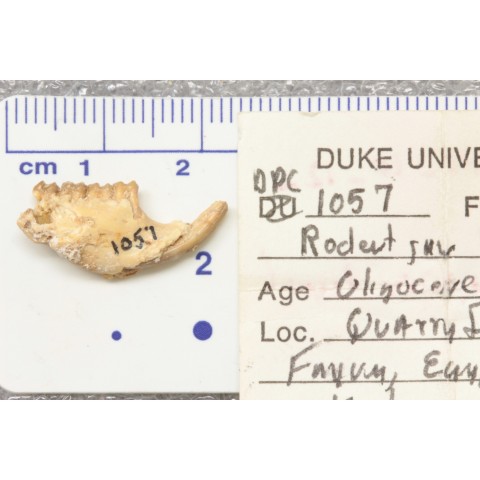 cm 1 2
2
1057
DUKE UNIVE
DPC
1057 F
Rodent jaw
Age Oligocene
Loc. Quarry I
Fayum, Egy